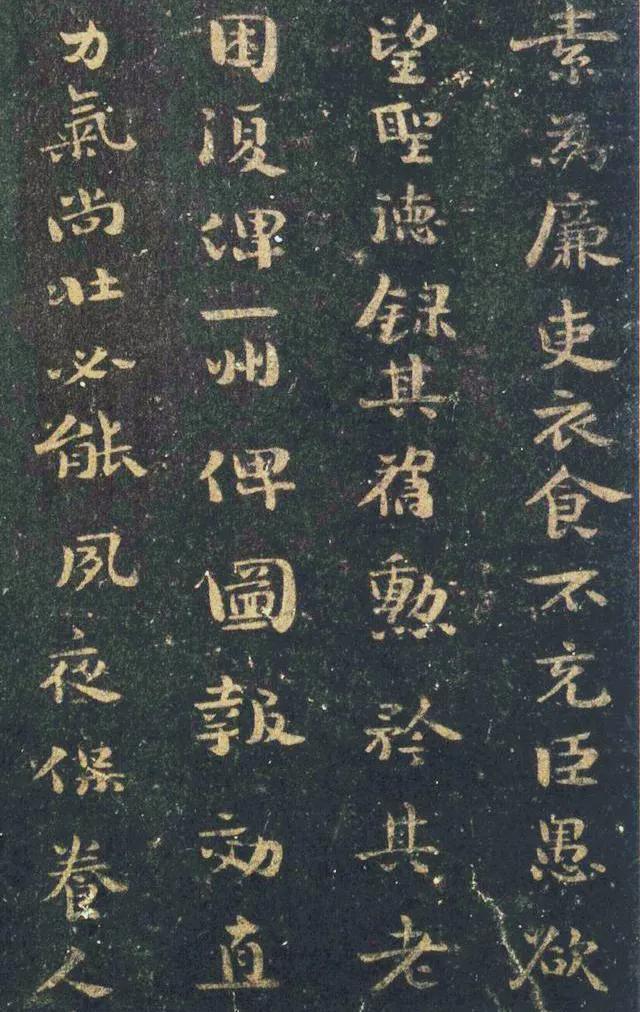 素為廉吏衣食不充臣愚欲
望聖德錄其舊勲矜其老
困復俾一州俾圖報効直
力氣尚壯必能夙夜保養人